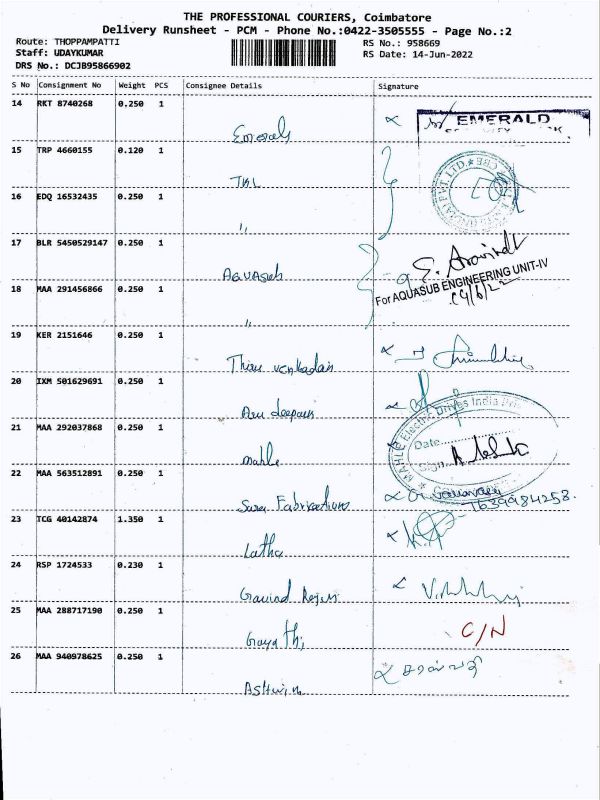 THE PROFESSIONAL COURIERS, Coimbatore
Delivery Runsheet - PCM - Phone No.:0422-3505555 - Page No.:2
Route: THOPPAMPATTI
RS No.: 958669
Staff: UDAYKUMAR
RS Date: 14-Jun-2022
DRS No.: DCJB95866902
S No Consignment No Weight PCS Consignee Details Signature
14 RKT 8740268 0.250 1
Emerald
EMERALD
15 TRP 4660155 0.120 1
TKL
16 EDQ 16532435 0.250 1
"
17 BLR 5450529147 0.250 1
Aquasub
E. Aravindt
For AQUASUB ENGINEERING UNIT-IV
18 MAA 291456866 0.250 1
"
19 KER 2151646 0.250 1
Thiru venkadam
20 IXM 501629691 0.250 1
Aru deepam
MAHLE Electric Drives India
Date
Sign
21 MAA 292037868 0.250 1
mahle
22 MAA 563512891 0.250 1
Fabrications
7639984258.
23 TCG 40142874 1.350 1
Latha
24 RSP 1724533 0.230 1
Govind
25 MAA 288717190 0.250 1
Gayathi
C/N
26 MAA 940978625 0.250 1
Ashwin
சரஸ்வதி